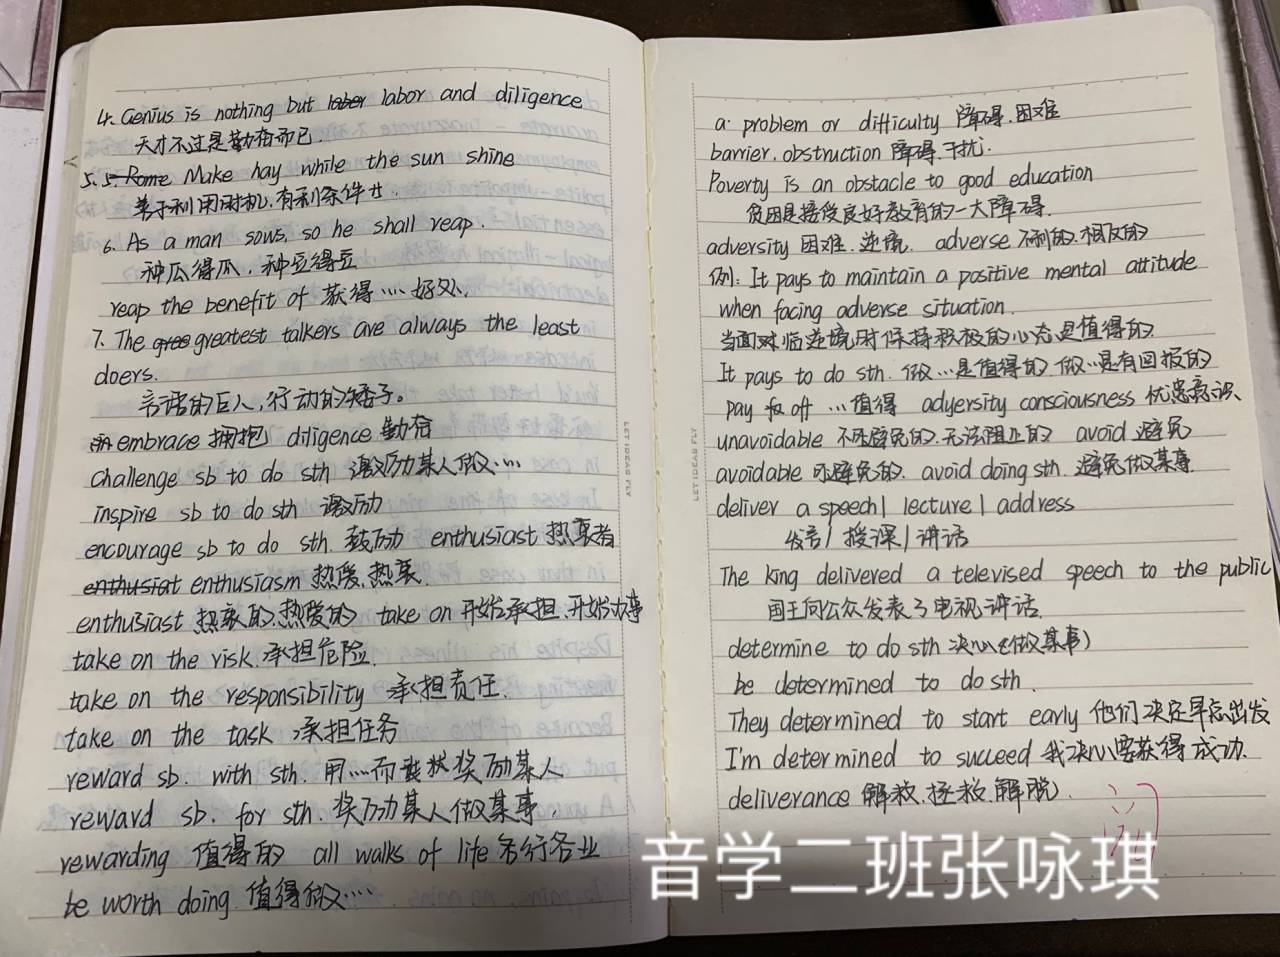 4. Genius is nothing but labor and diligence
天才不过是勤奋而已.
5. Make hay while the sun shine
善于利用时机,有利条件等.
6. As a man sows, so he shall reap.
种瓜得瓜,种豆得豆
reap the benefit of 获得....好处.
7. The greatest talkers are always the least
doers.
言语的巨人,行动的矮子。
embrace 拥抱 diligence 勤奋
challenge sb to do sth 激励某人做....
inspire sb to do sth 激励
encourage sb to do sth. 鼓励 enthusiast 热衷者
enthusiasm 热爱.热衷.
enthusiast 热衷的.热爱的 take on 开始承担.开始从事
take on the risk. 承担危险.
take on the responsibility 承担责任.
take on the task 承担任务
reward sb. with sth. 用....而奖励某人
reward sb. for sth. 奖励某人做某事.
rewarding 值得的 all walks of life 各行各业
be worth doing. 值得做....
a. problem or difficulty 障碍.困难
barrier. obstruction 障碍.干扰.
Poverty is an obstacle to good education
贫困是接受良好教育的一大障碍.
adversity 困难.逆境. adverse 不利的.相反的
例: It pays to maintain a positive mental attitude
when facing adverse situation.
当面对临逆境时保持积极的心态是值得的.
It pays to do sth. 做...是值得的 做...是有回报的
pay off ...值得 adversity consciousness 忧患意识.
unavoidable 不可避免的.无法阻止的 avoid 避免
avoidable 可避免的. avoid doing sth. 避免做某事.
deliver a speech | lecture | address
发言 | 授课 | 讲话
The king delivered a televised speech to the public
国王向公众发表了电视讲话.
determine to do sth 决心(做某事)
be determined to do sth.
They determined to start early 他们决定早点出发
I'm determined to succeed 我决心要获得成功.
deliverance 解救.拯救.解脱.
阅
音学二班张咏琪
LET IDEAS FLY
LET IDEAS FLY